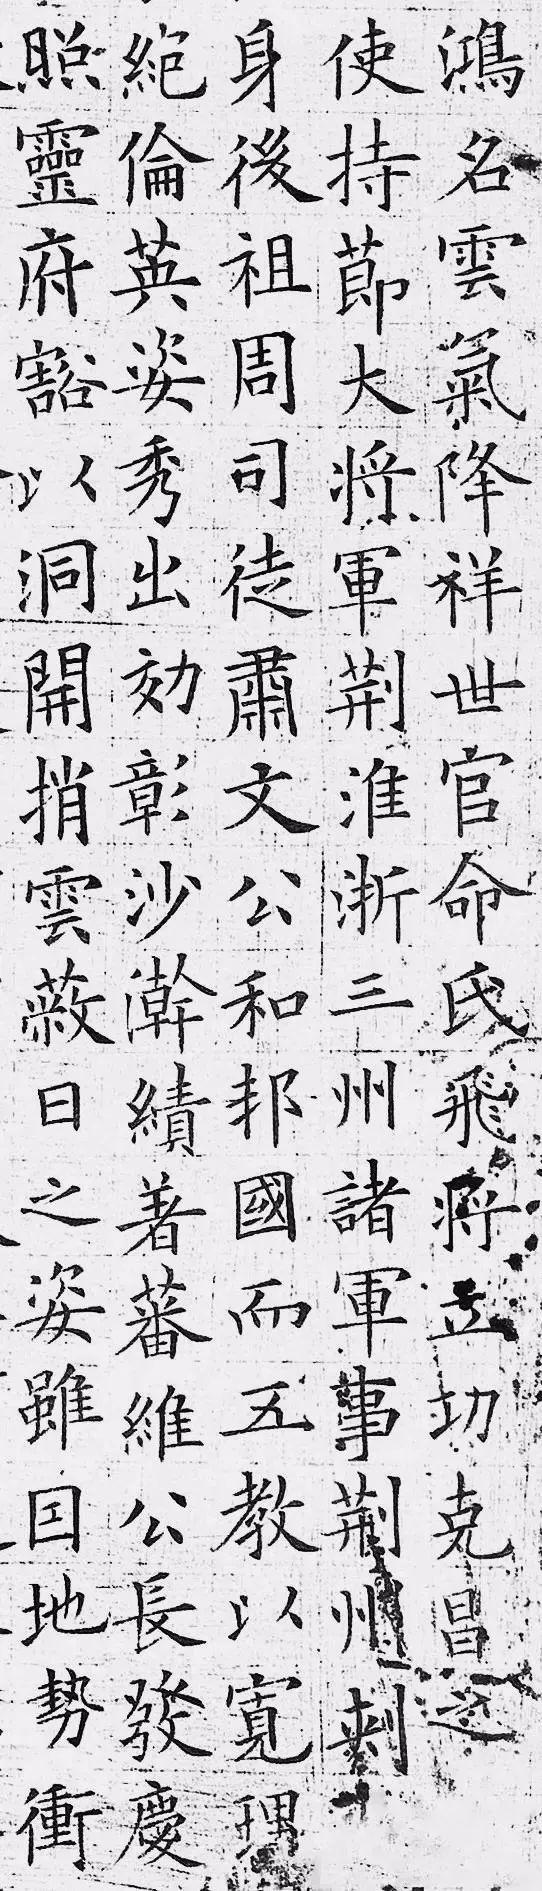 鴻名雲氣降祥世官命氏飛將立功克昌之
使持莭大將軍荊淮浙三州諸軍事荊州刺
身後祖周司徒肅文公和邦國而五教以寬理
絕倫英姿秀出効彰沙澣績著蕃維公長發慶
照靈府豁以洞開捎雲蔽日之姿雖囙地勢衝